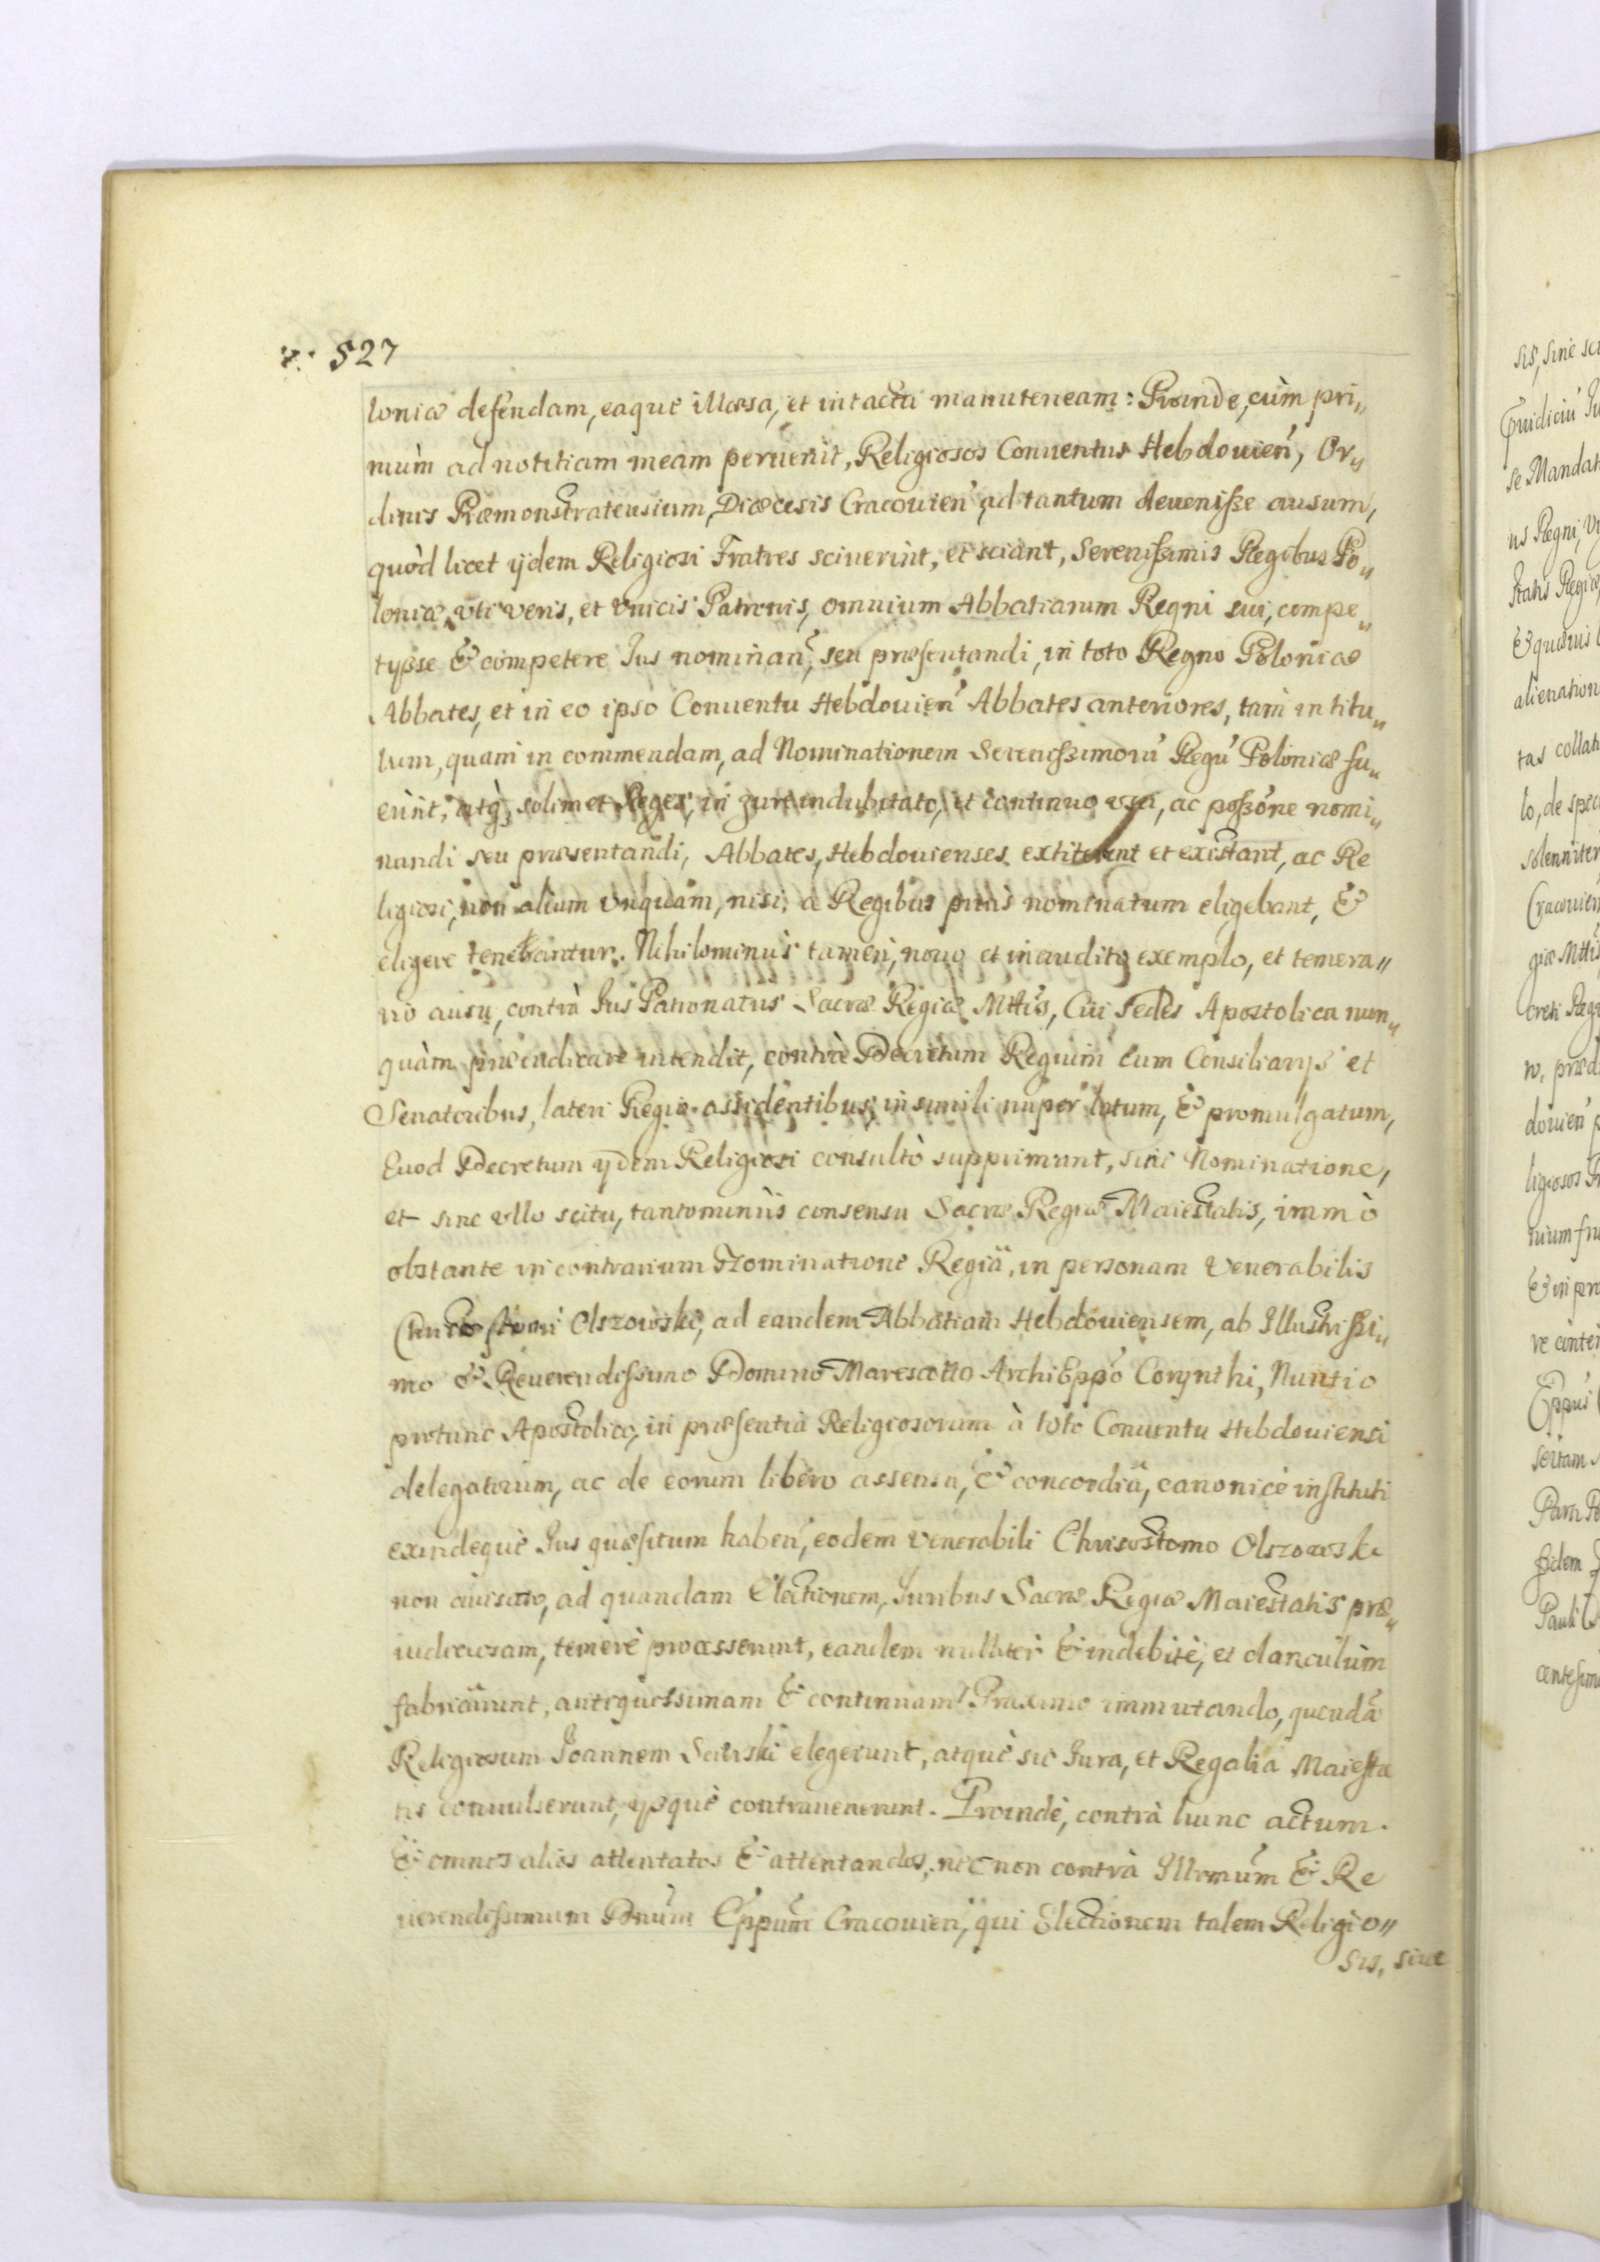 v. 527
loniæ defendam, eaquè illæsa, et intacta manuteneam: Proinde, cùm pri„
mùm ad notitiam meam peruenit, Religiosos Conuentus Hebdouien̄, Or„
dinis Præmonstratensium, Diœcesis Cracouien̄ ad tantum deuenisse ausum,
quòd licet ijdem Religiosi Fratres sciuerint, et sciant, Serenissimis Regibus Po„
loniæ, vti veris, et vnicis Patronis, omnium Abbatiarum Regni sui, compe„
tysse & competere Jus nominan̄, seu præsentandi, in toto Regno Poloniæ
Abbates, et in eo ipso Conuentu Hebdouien̄ Abbates anteriores, tàm in titu„
lum, quam in commendam, ad Nominationem Serenissimorū Regū Poloniæ fu„
erint, atq̀, solimet Reges, in jure indubitato, et continuo usu, ac poss̄one nomi„
nandi seu præsentandi, Abbates, Hebdouienses extiterint et existant, ac Re
ligiosi, non alium vnquam, nisi, à Regibus priùs nominatum eligebant, &
eligere tenebantur. Nihilominùs tamen, nouo et inaudito exemplo, et temera„
rio ausu, contrà Jus Patronatus Sacræ Regiæ Mttis, Cui Sedes Apostolica nun„
quàm præiudicare intendit, contrà Decretum Regium cum Consiliarijs et
Senatoribus, lateri Regio assidentibus, in simili nuper latum, & promulgatum,
Quod Decretum ijdem Religiosi consultò supprimunt, sine Nominatione,
et sine vllo scitu, tantominùs consensu Sacræ Regiæ Maiestatis, immò
obstante in contrarium Nominatione Regiâ, in personam Venerabilis
Chrisostomi Olszowski, ad eandem Abbatiam Hebdouiensem, ab Illustrissi„
mo & Reuerendissimo Domino Marescotto ArchiEppō Corynthi, Nuntio
protunc Apostolico, in præsentia Religiosorum à toto Conuentu Hebdouiensi
delegatorum, ac de eorum libero assensu, & concordiâ, canonicè instituti
exindequè Jus quæsitum haben̄, eodem Venerabili Chrisostomo Olszowski
non auisato, ad quandam Electionem, Juribus Sacræ Regiæ Maiestatis præ„
iudiciosam, temerè processerunt, eandem nulliter & indebitè, et clanculùm
fabricârunt, antiquissimam & continuam Praxim immutando, quendā
Religiosum Joannem Sarski elegerunt, atquè sic Jura, et Regalia Maiesta
tis conuulserunt, ijsquè contrauenerunt. Proindè, contrà hunc actum
& omnes alios attentatos & attentandos, necnon contrà Illrmūm & Re
uerendissimum Dnūm Eppūm Cracouien̄, qui Electionem talem Religio„
sis, sine